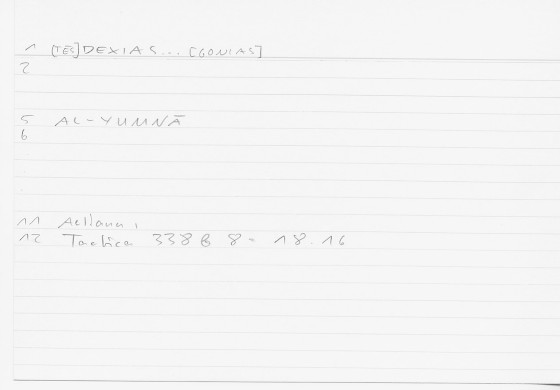 1 [TĒS] DEXIAS... [GONIAS]
2
5 AL-YUMNĀ
6
11 Aeliani,
12 Tactica 338 B 8 - 18.16